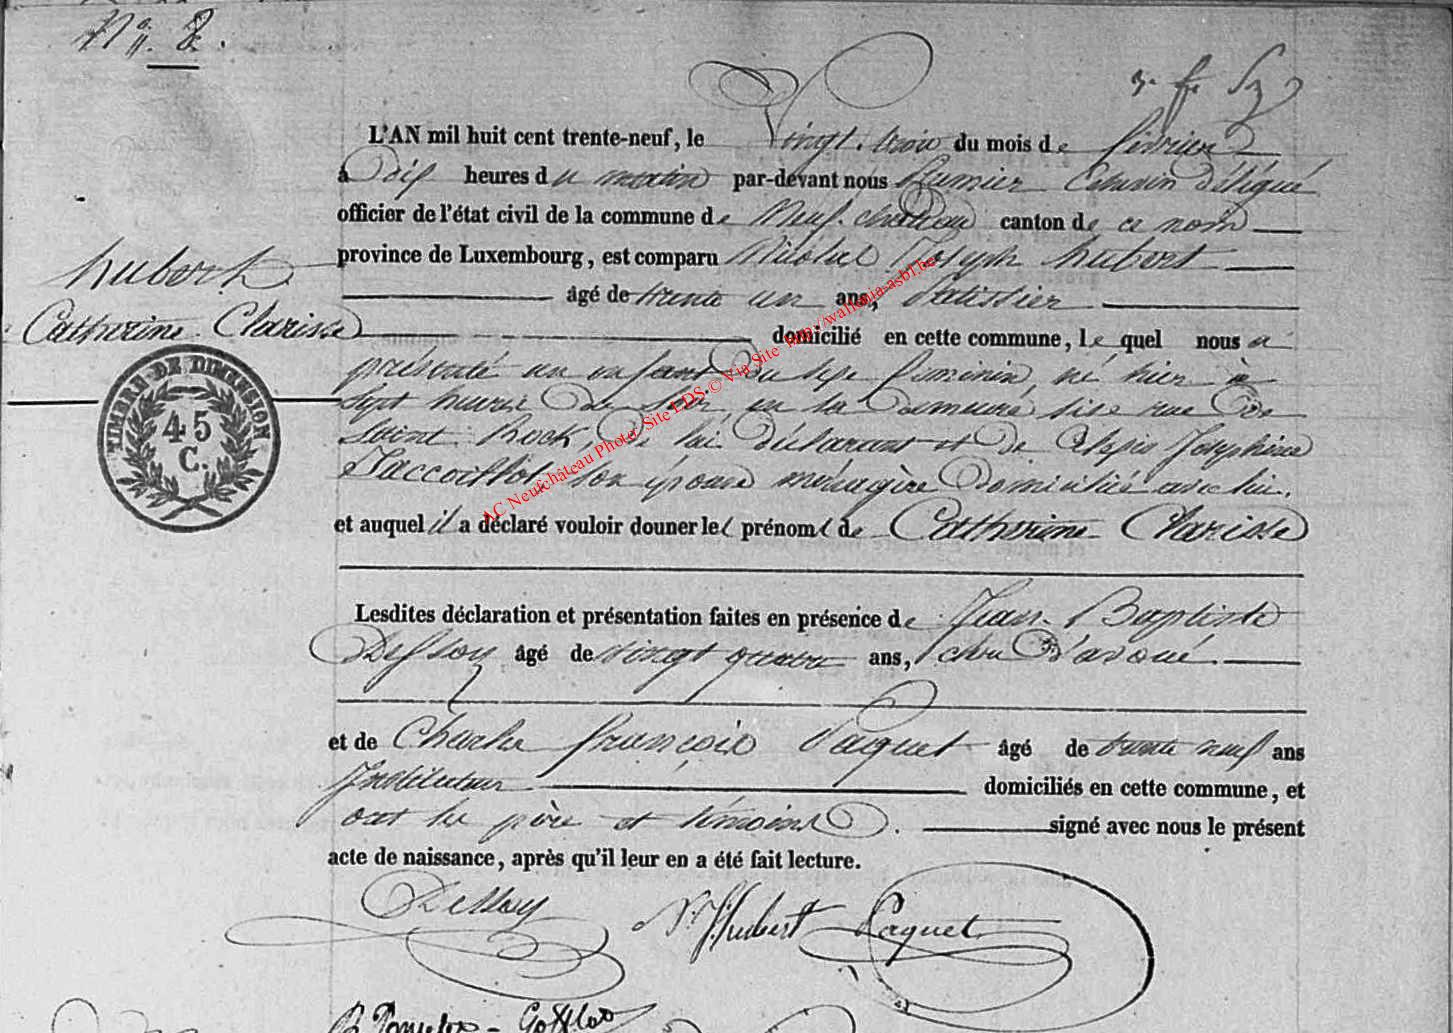 N° 8.
L'AN mil huit cent trente-neuf, le Vingt trois du mois de février
à Dix heures du matin par-devant nous Echevin délégué
officier de l'état civil de la commune de Neufchâteau canton de ce nom
province de Luxembourg, est comparu Nicolas Joseph hubert
âgé de trente un ans, Patissier
domicilié en cette commune, le quel nous a
présenté un enfant du sexe féminin, né hier à
sept heures du soir, en sa demeure sise rue de
Saint Roch, de lui déclarant et de Joséphine
son épouse ménagère domiciliés avec lui.
et auquel il a déclaré vouloir donner les prénoms de Catherine Clarisse
Lesdites déclaration et présentation faites en présence de Jean-Baptiste
Dessoy âgé de vingt quatre ans, clerc d'avoué
et de Charles françois Paquet âgé de trente neuf ans
Instituteur domiciliés en cette commune, et
ont les père et témoins signé avec nous le présent
acte de naissance, après qu'il leur en a été fait lecture.
hubert
Catherine Clarisse
TIMBRE DE DIMENSION
45
C.
Dessoy N. Hubert Paquet
AC Neufchâteau Photo Site LDS © Via Site http://wallonia-asbl.be